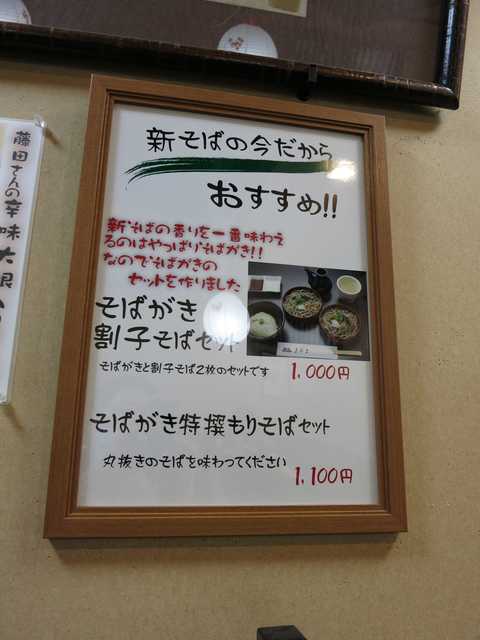 新そばの今だから
おすすめ!!
新そばの香りを一番味わえ
るのはやっぱりそばがき!!
なのでそばがきの
セットを作りました
そばがき
割子そばセット
そばがきと割子そば2枚のセットです
1,000円
そばがき特撰もりそばセット
丸抜きのそばを味わってください
1,100円
藤田さんの辛味大根